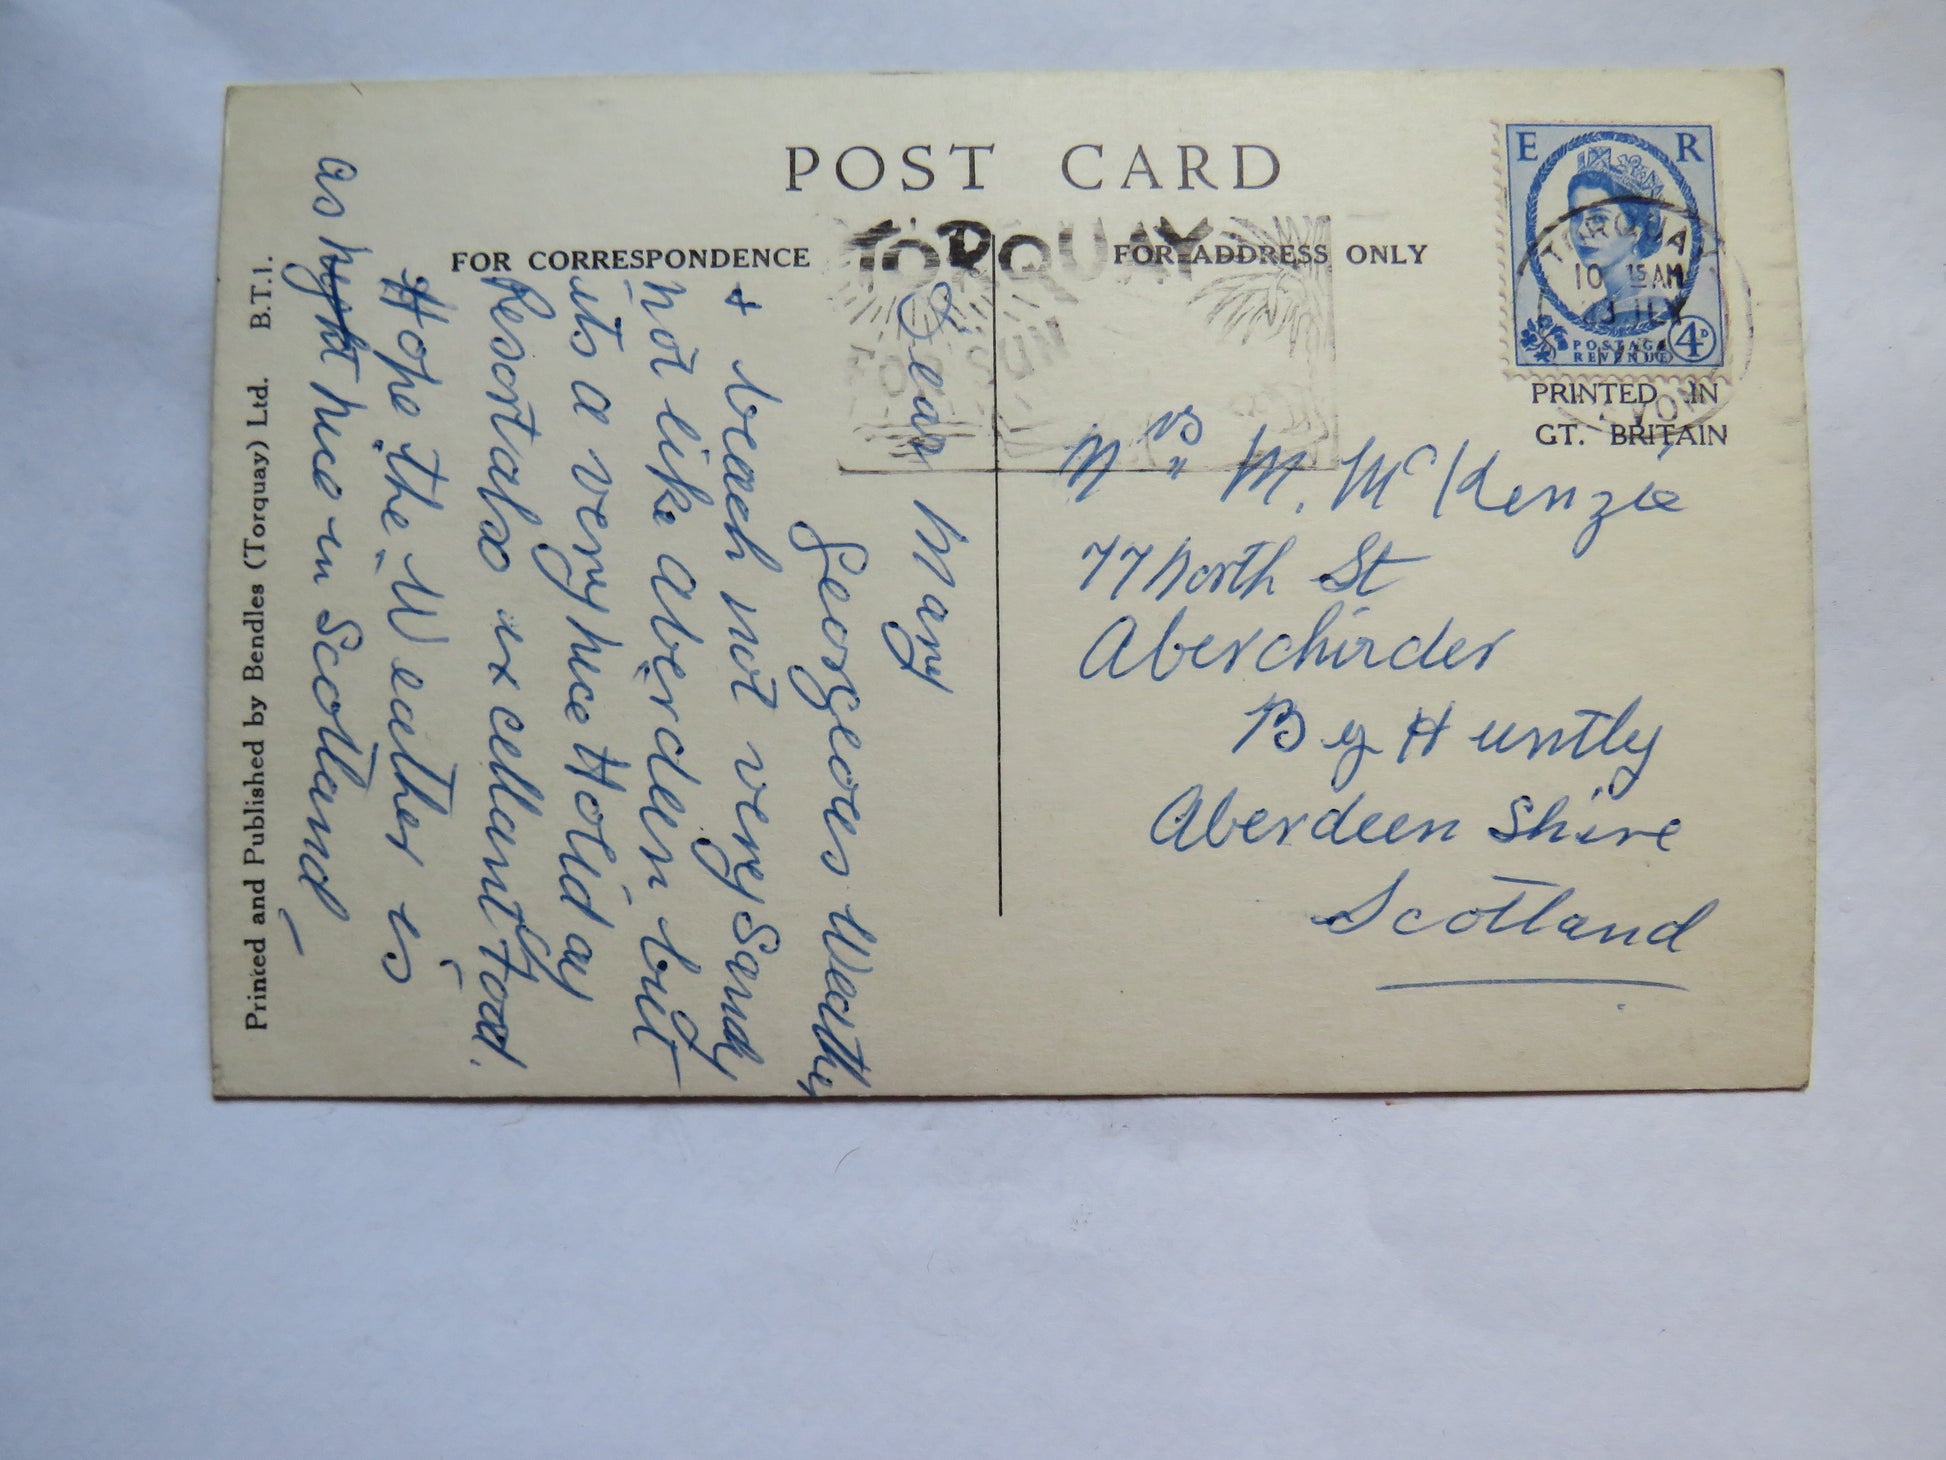 POST CARD
FOR CORRESPONDENCE
FOR ADDRESS ONLY
TORQUAY
E R
POSTAGE
REVENUE
4D
TORQUAY
10 15 AM
DEVON
PRINTED IN
GT. BRITAIN
Mrs M. McKenzie
77 North St
Aberchirder
By Huntly
Aberdeen Shire
Scotland
Dear Mary
Georgeous Weather
+ beach not very Sandy
not like Aberdeen but
its a very nice Holiday
Resort also excellant food.
Hope the Weather is
as nice in Scotland
Printed and Published by Bendles (Torquay) Ltd. B.T.1.